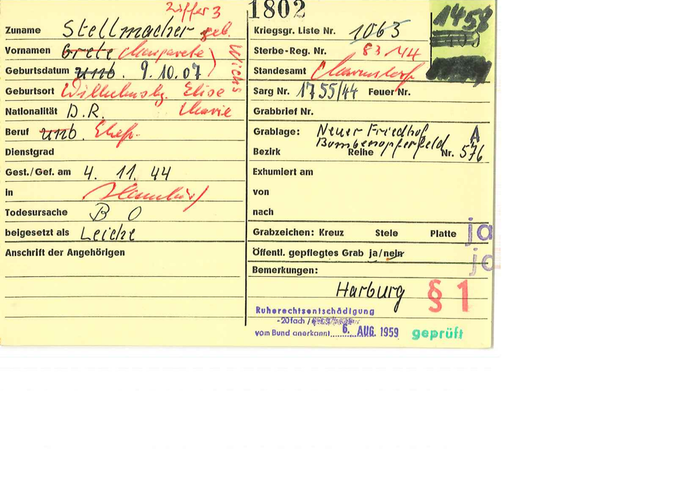 Ziffer 3
1802
1458
Zuname Stellmacher geb. Wichs
Kriegsgr. Liste Nr. 1063
Vornamen Grete Margarete
Sterbe-Reg. Nr. 83/44
Geburtsdatum unb. 9.10.07
Standesamt
Geburtsort Wilhelmsbg. Elise
Sarg Nr. 1755/44 Feuer Nr.
Nationalität D.R. Marie
Grabbrief Nr.
Beruf unb. Ehefr.
Grablage: Neuer Friedhof A
Bombenopferfeld
Bezirk Reihe Nr. 576
Dienstgrad
Gest./Gef. am 4. 11. 44
Exhumiert am
in Hamburg
von
Todesursache B O
nach
beigesetzt als Leiche
Grabzeichen: Kreuz Stele Platte ja
Anschrift der Angehörigen
Öffentl. gepflegtes Grab ja/nein ja
Bemerkungen:
Harburg § 1
Ruherechtsentschädigung
-20fach /
vom Bund anerkannt 6. AUG. 1959 geprüft